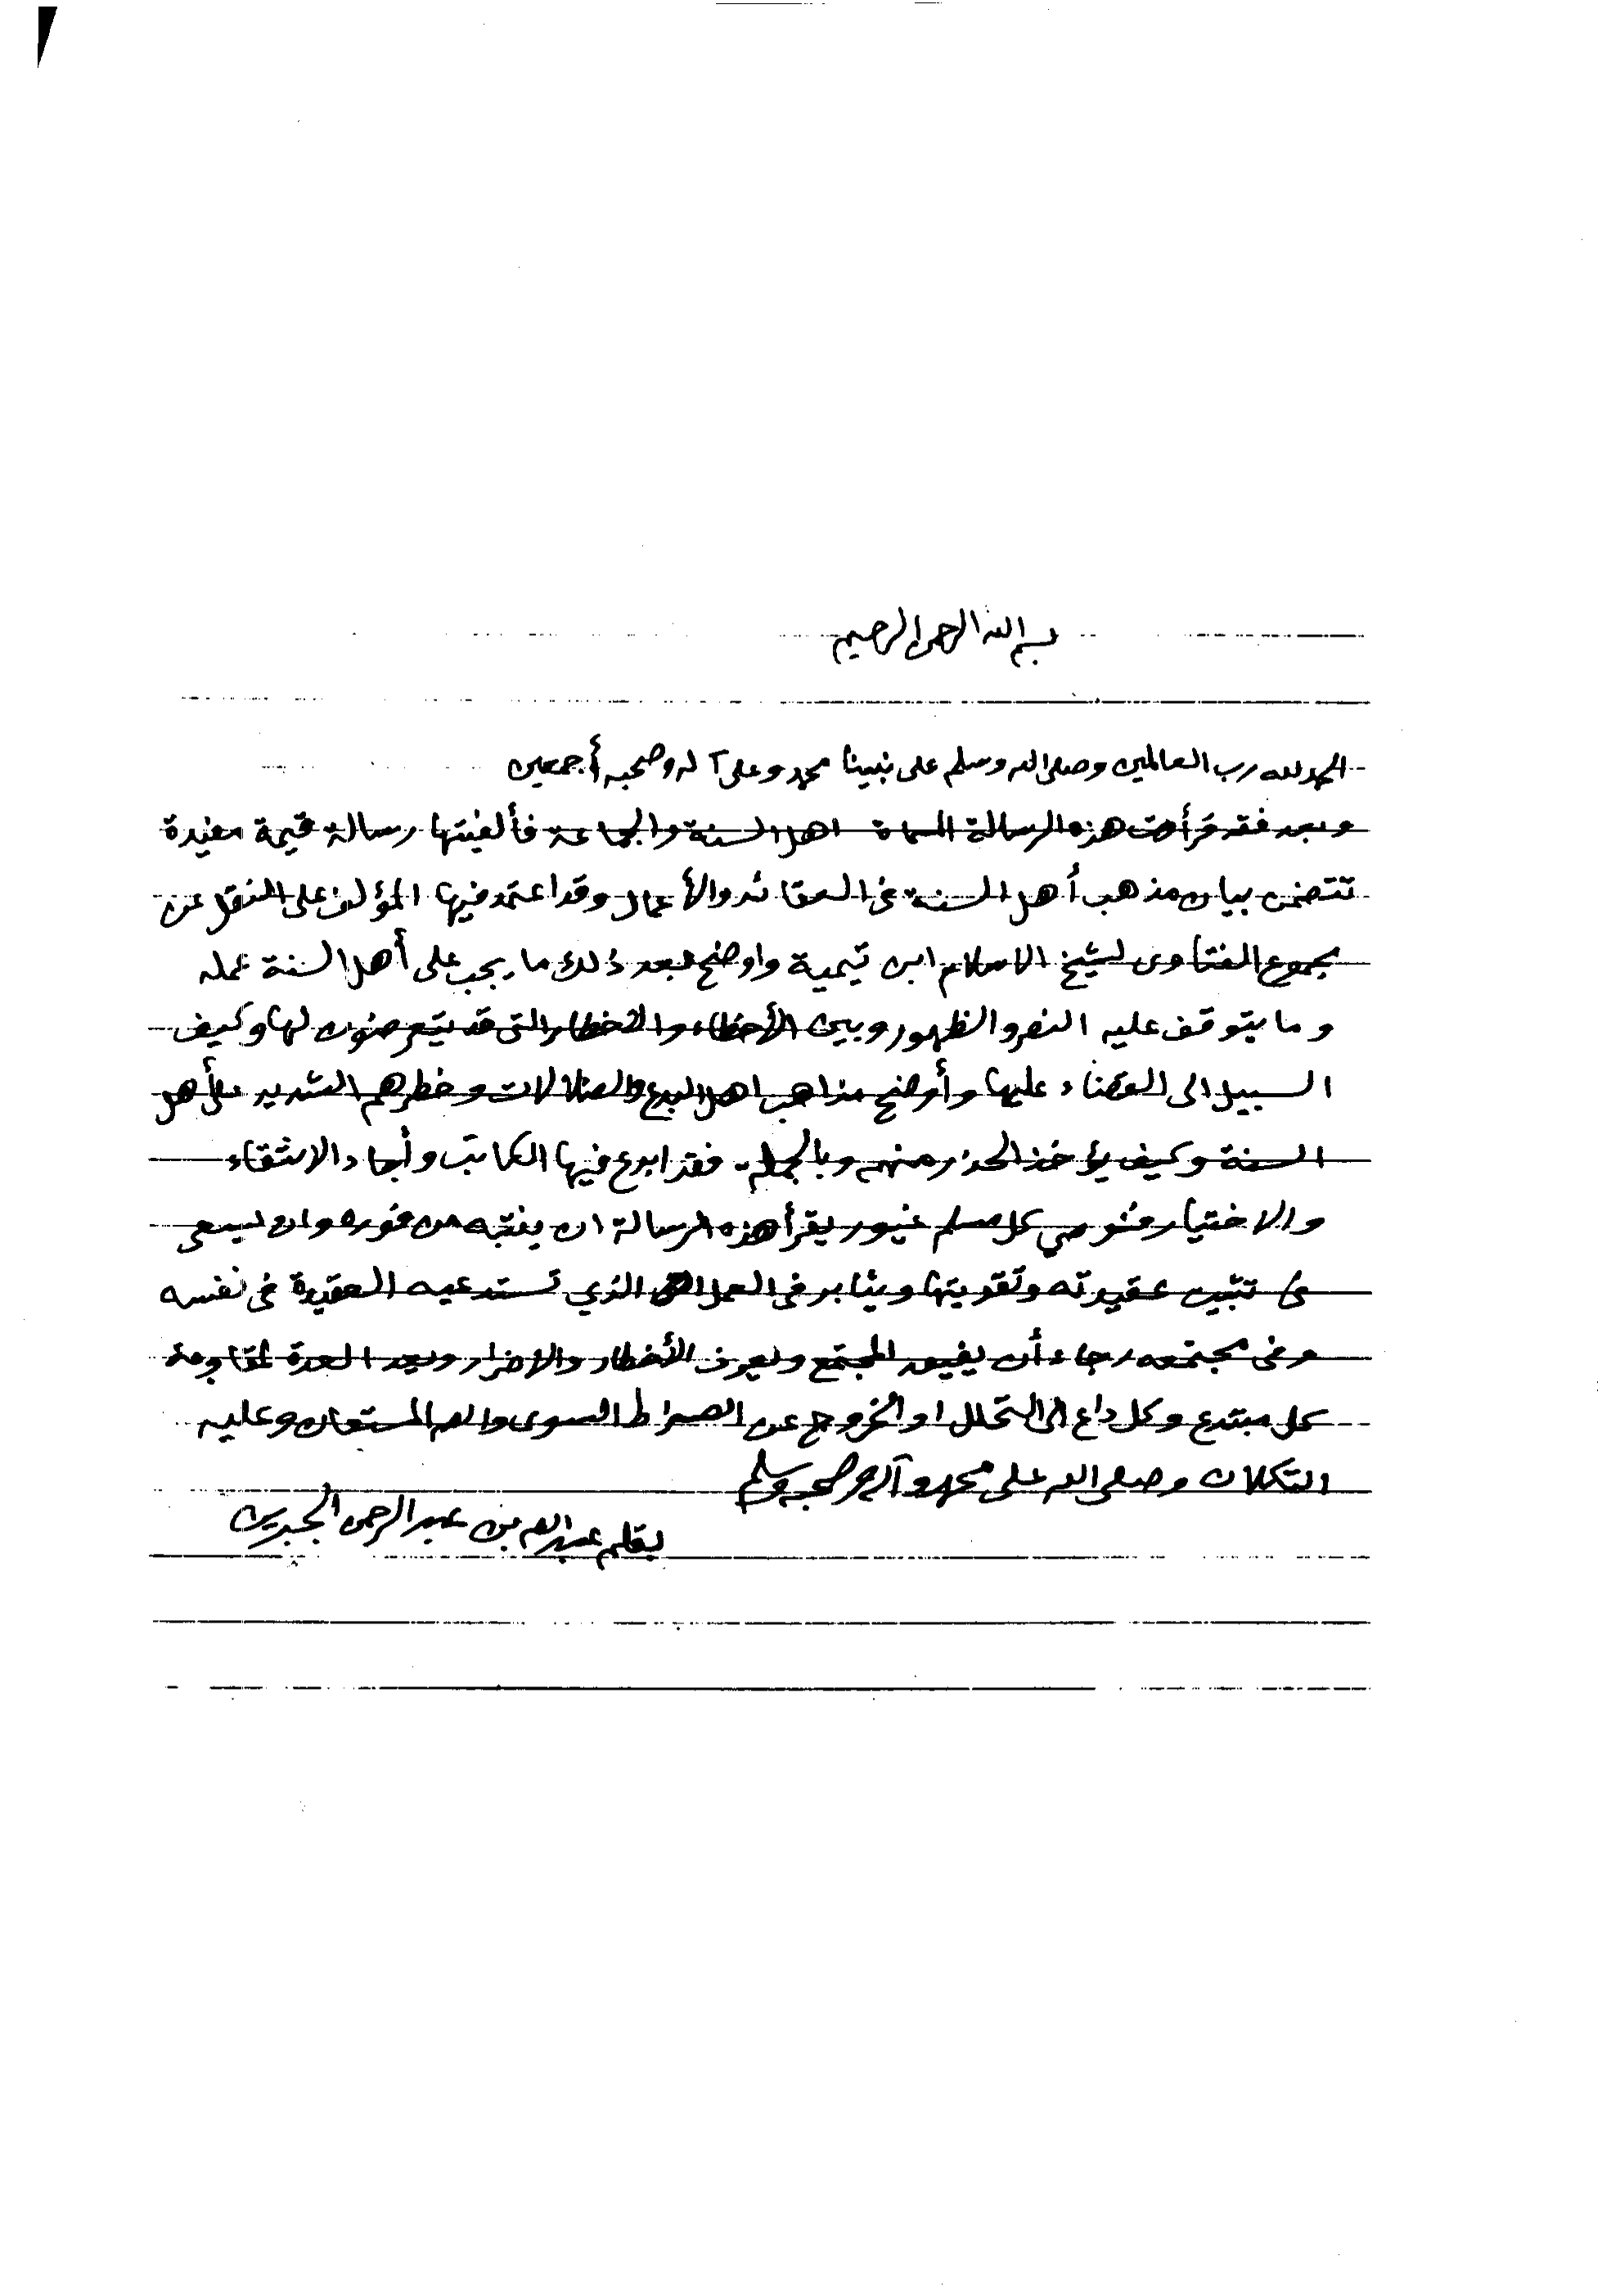 بسم الله الرحمن الرحيم
الحمد لله رب العالمين وصلى الله وسلم على نبينا محمد وعلى آله وصحبه أجمعين
وبعد فقد قرأت هذه الرسالة المسماة اهل السنة والجماعة فألفيتها رسالة قيمة مفيدة
تتضمن بيان مذهب أهل السنة في العقائد والأعمال وقد اعتمد فيها المؤلف على النقل عن
مجموع الفتاوى لشيخ الاسلام ابن تيمية واوضح بعد ذلك ما يجب على أهل السنة عمله
وما يتوقف عليه النصر والظهور وبين الأخطاء والأخطار التي قد يتعرضون لها وكيف
السبيل الى القضاء عليها وأوضح مذاهب اهل البدع والضلالات وخطرهم الشديد على أهل
السنة وكيف يؤخذ الحذر منهم وبالجملة فقد ابدع فيها الكاتب وأجاد الانتقاء
والاختيار فنوصي كل مسلم غيور يقرأ هذه الرسالة ان ينتبه من فوره وان يسعى
في تثبيت عقيدته وتقويتها ويثابر في العمل الذي تستدعيه العقيدة في نفسه
وفي مجتمعه رجاء أن يفيق المجتمع ويعرف الأخطار والاضرار ويعد العدة لمقاومة
كل مبتدع وكل داع الى التحلل او الخروج عن الصراط السوى والله المستعان وعليه
التكلان وصلى الله على محمد وآله وصحبه وسلم
بقلم عبدالله بن عبدالرحمن الجبرين